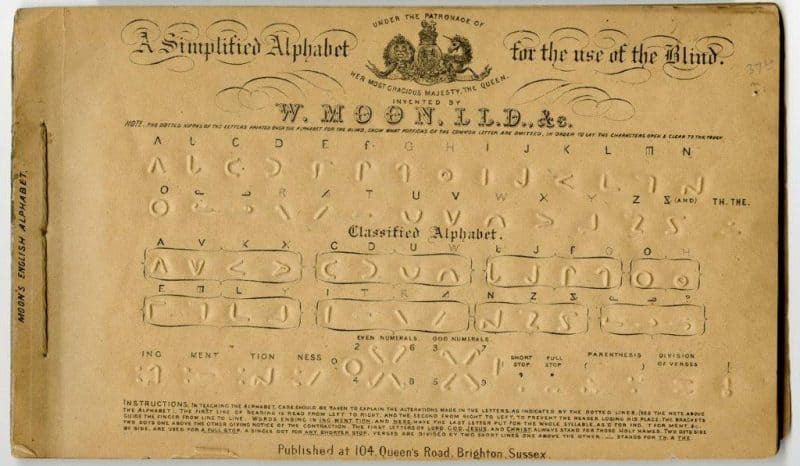 UNDER THE PATRONAGE OF
A Simplified Alphabet for the use of the Blind.
HER MOST GRACIOUS MAJESTY, THE QUEEN.
INVENTED BY
W. MOON, LL.D., &c.
NOTE. THE DOTTED WORKS OF THE LETTERS PRINTED OVER THE ALPHABET FOR THE BLIND, SHOW WHAT PORTIONS OF THE COMMON LETTER ARE OMITTED, IN ORDER TO LAY THE CHARACTERS OPEN & CLEAR TO THE TOUCH.
A b C D E f G H I J K L M N
O P Q R S T U V W X Y Z & (AND) TH. THE.
Classified Alphabet.
A V K X C D U W b J f G O H
E M L Y I T R S N Z & P Q
EVEN NUMERALS. ODD NUMERALS.
ING MENT TION NESS 0 2 6 3 7 SHORT STOP FULL STOP PARENTHESIS DIVISION OF VERSES
4 8 5 9
INSTRUCTIONS. IN TEACHING THE ALPHABET, CARE SHOULD BE TAKEN TO EXPLAIN THE ALTERATIONS MADE IN THE LETTERS, AS INDICATED BY THE DOTTED LINES, (SEE THE NOTE ABOVE
THE ALPHABET). THE FIRST LINE OF READING IS READ FROM LEFT TO RIGHT, AND THE SECOND FROM RIGHT TO LEFT, TO PREVENT THE READER LOSING HIS PLACE; THE BRACKETS
GUIDE THE FINGER FROM LINE TO LINE. WORDS ENDING IN ING MENT TION, AND NESS, HAVE THE LAST LETTER PUT FOR THE WHOLE SYLLABLE, AS G FOR ING, T FOR MENT, &c.
TWO DOTS ONE ABOVE THE OTHER GIVING NOTICE OF THE CONTRACTION. THE FIRST LETTERS OF LORD, GOD, JESUS, AND CHRIST, ALWAYS STAND FOR THOSE HOLY NAMES. TWO DOTS SIDE
BY SIDE, ARE USED FOR A FULL STOP, A SINGLE DOT FOR ANY SHORTER STOP. VERSES ARE DIVIDED BY TWO SHORT LINES ONE ABOVE THE OTHER. STANDS FOR TH, & THE.
Published at 104, Queen's Road, Brighton, Sussex.
MOON'S ENGLISH ALPHABET.